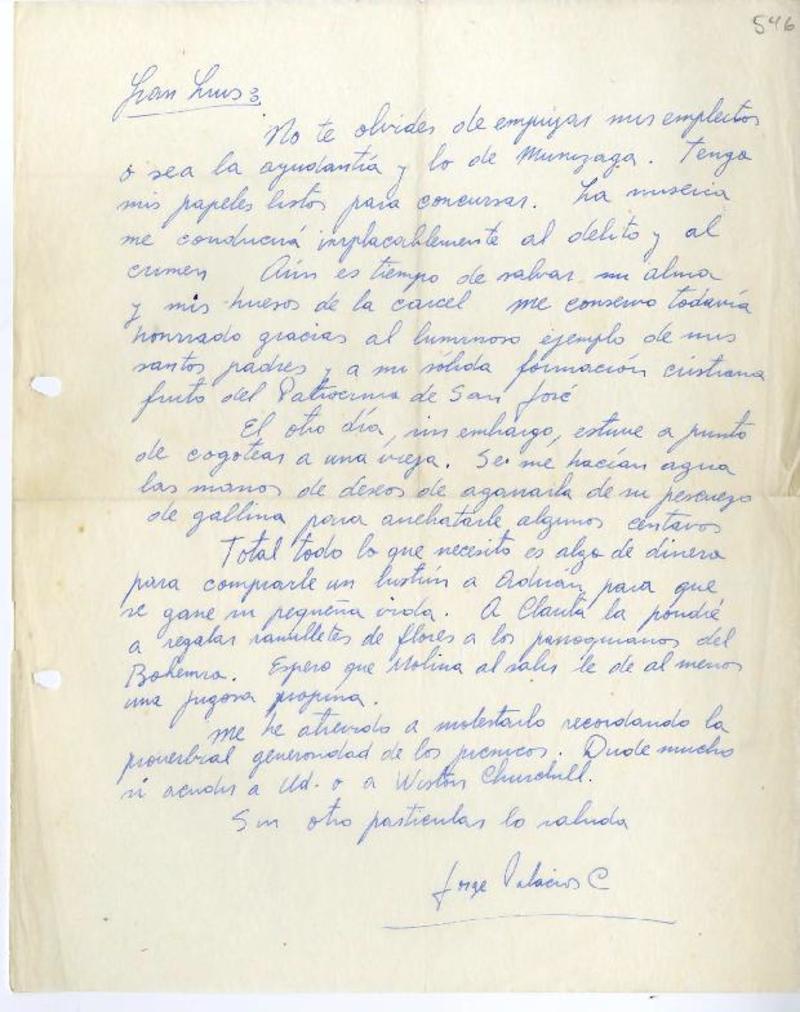 546
Gran Luis
No te olvides de empujar mis empleitos
o sea la ayudantía y lo de Munizaga. Tengo
mis papeles listos para concursar. La miseria
me conducirá implacablemente al delito y al
crimen Aún es tiempo de salvar mi alma
y mis huesos de la carcel me conservo todavía
honrado gracias al luminoso ejemplo de mis
santos padres y a mi sólida formación cristiana
fruto del Patrocinio de San José
El otro día, sin embargo, estuve a punto
de cogotear a una vieja. Se me hacían agua
las manos de deseos de agarrarla de su pescuezo
de gallina para arrebatarle algunos centavos
Total todo lo que necesito es algo de dinero
para comprarle un lustrín a Adrián para que
se gane su pequeña vida. A Claudia la pondré
a regalar ramilletes de flores a los parroquianos del
Bohemio. Espero que Molina al salir le de al menos
una jugosa propina.
Me he atrevido a molestarlo recordando la
proverbial generosidad de los picnicos. Dude mucho
si acudir a Ud. o a Wiston Churchill.
Sin otro particular lo saluda
Jorge Palacios C